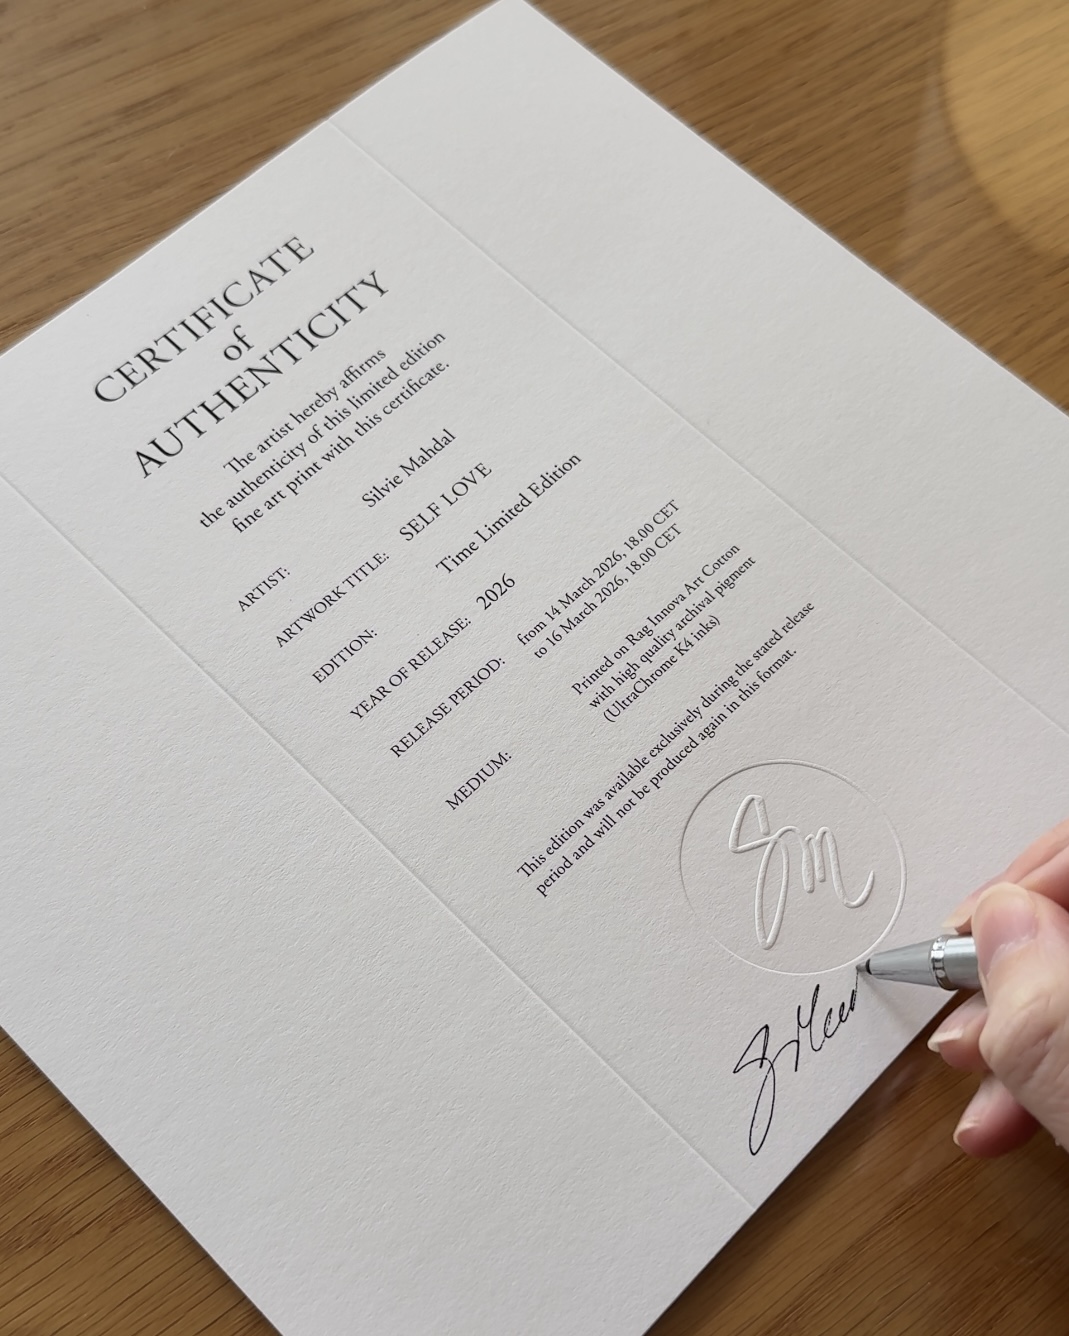 CERTIFICATE
of
AUTHENTICITY
The artist hereby affirms
the authenticity of this limited edition
fine art print with this certificate.
ARTIST: Silvie Mahdal
ARTWORK TITLE: SELF LOVE
EDITION: Time Limited Edition
YEAR OF RELEASE: 2026
RELEASE PERIOD: from 14 March 2026, 18.00 CET
to 16 March 2026, 18.00 CET
MEDIUM: Printed on Rag Innova Art Cotton
with high quality archival pigment
(UltraChrome K4 inks)
This edition was available exclusively during the stated release
period and will not be produced again in this format.
Sm